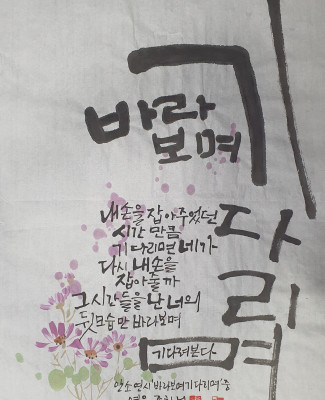 바라
보며
기다리며
내 손을 잡아주었던
시간 만큼
기다리면 네가
다시 내 손을
잡아줄까
그 시간들을 난 너의
뒷모습만 바라보며
기다려본다
시 '바라보며 기다리며' 중